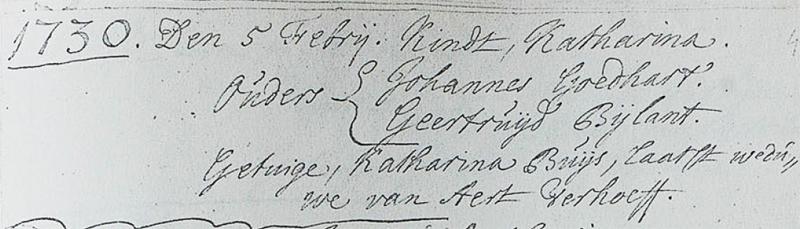 1730. Den 5 Febrij. Kindt, Katharina.
Ouders { Johannes Goedhart.
Geertruijd Bijlant.
Getuige, Katharina Buijs, laatst wedu„
we van Aert Verhoeff.